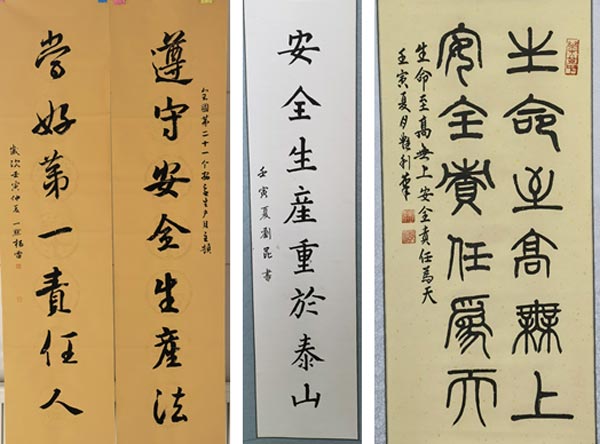 全國第二十一个安全生产月主題
遵守安全生產法
當好第一責任人
歲次壬寅仲夏一
安全生產重於泰山
壬寅夏劉昆書
生命至高無上
安全責任為天
生命至高無上安全責任為天
壬寅夏月